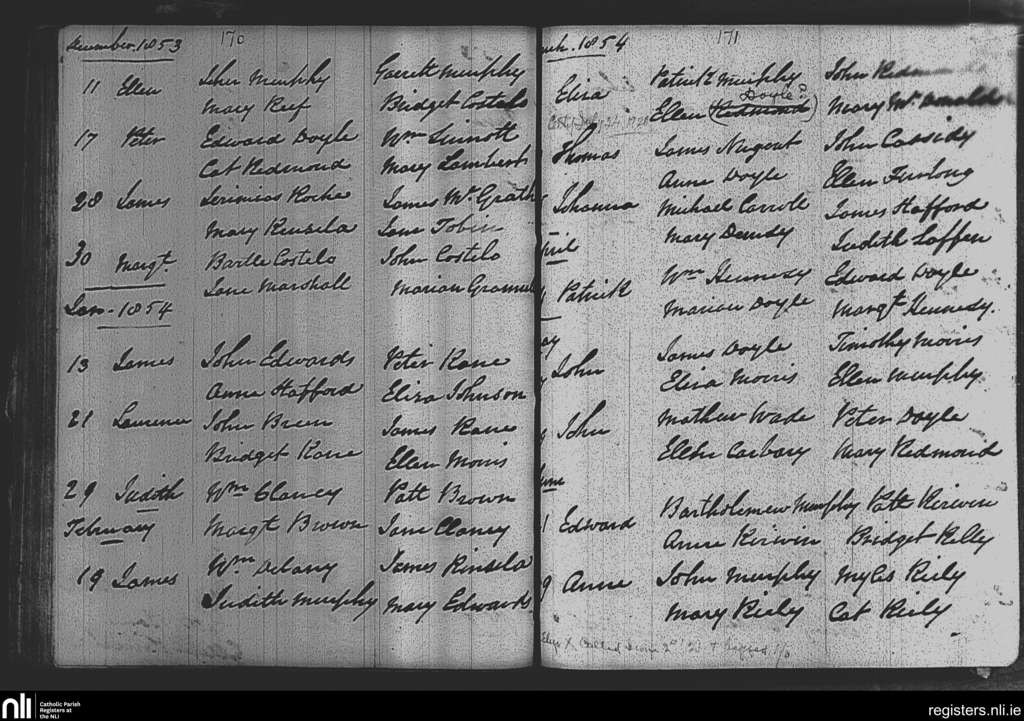 December. 1853 170
11 Ellen John Murphy Garrett Murphy
Mary Reef Bridget Costelo
17 Peter Edward Doyle Wm Sinnott
Cat Redmond Mary Lambert
28 James Jerimias Roche James Mc. Grath
Mary Kinsela Jane Tobin
30 Margt. Bartle Costelo John Costelo
Jane Marshall Marian
Jan - 1854
13 James John Edwards Peter Kane
Anne Stafford Eliza Johnson
21 Laurence John Breen James Kane
Bridget Kane Ellen Morris
29 Judith Wm Clancy Patt Brown
February Margt Brown Jane Clancy
19 James Wm Delany James Kinsela
Judith Murphy Mary Edwards
1854 171
Eliza Patrick Murphy John Redmond
Doyle?
Ellen (Redmond) Mary Mc. Donald
Thomas James Nugent John Cassidy
Anne Doyle Ellen Furlong
Johanna Michael Carroll James Stafford
Mary Dempsy Judith Laffen
pril
Patrick Wm Hennesy Edward Doyle
Marian Doyle Margt Hennesy.
ay
John James Doyle Timothy Morris
Eliza Morris Ellen Murphy
John Mathew Wade Peter Doyle
Ellen Carbary Mary Redmond
une
1 Edward Bartholemew Murphy Patt Kirwin
Anne Kirwin Bridget Kelly
9 Anne John Murphy Myles Riely
Mary Riely Cat Riely
nli Catholic Parish
Registers at
the NLI
registers.nli.ie